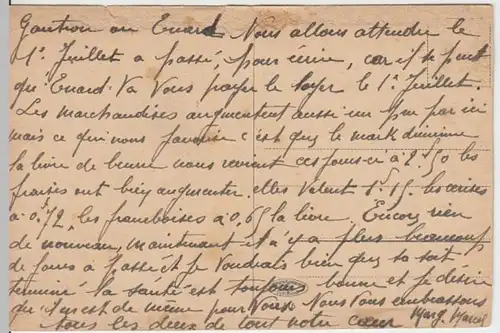 Gautron ou Enard Nous allons attendre le
1er Juillet a passé, pour écrire, car il se peut
que Enard Va Vous payer le loyer le 1er Juillet.
Les marchandises augmentent aussi un peu par ici
mais ce qui nous favorise c'est que le mark diminue
la livre de beurre nous revient ces jours-ci à 2f50 les
fraises ont bien augmenter. elles Valent 1f15. les cerises
à 0f72, les framboises à 0,65 la livre. Encore rien
de nouveau, maintenant il n'y a plus beaucoup
de jours à passé et je Voudrais bien que ce soit
terminé la santé est toujours bonne et je desire
qu'il en est de même pour Vous. Nous Vous embrassons
tous les deux de tout notre coeur Marg. Marcel